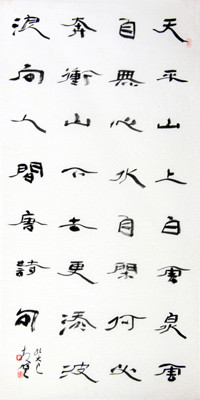 天平山上白雲泉雲
自無心水自閑何必
奔衝山下去更添波
浪向人間唐詩句